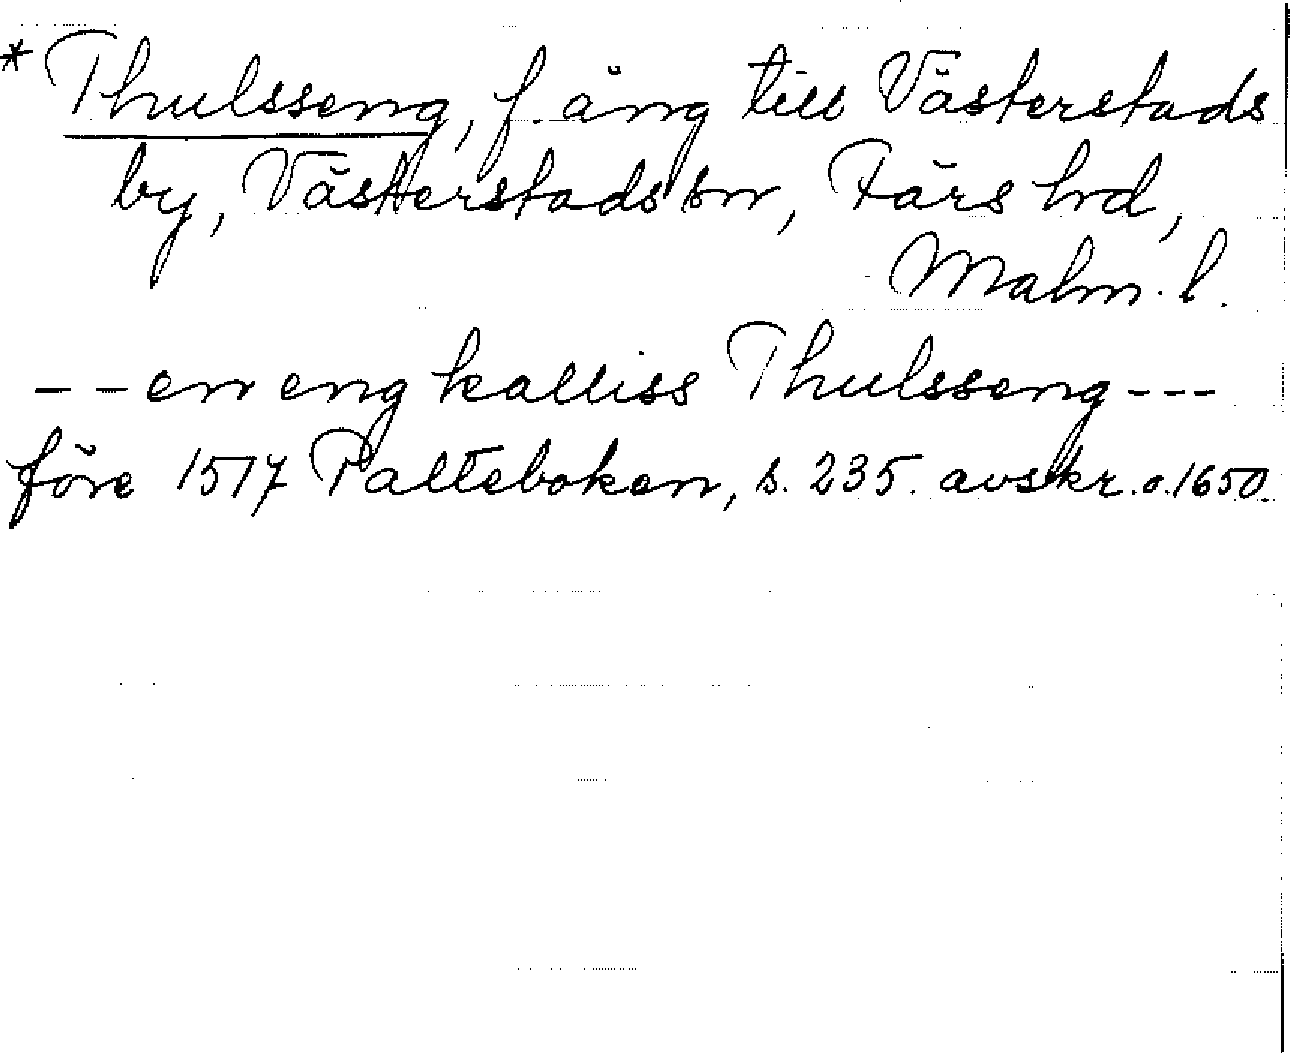 * Thulsseng, f. äng till Västerstads
by, Västerstads sn, Färs hd,
Malm. l.
– – en eng kalliss Thulsseng – – –
före 1517 Palteboken, s. 235. avskr. o. 1650